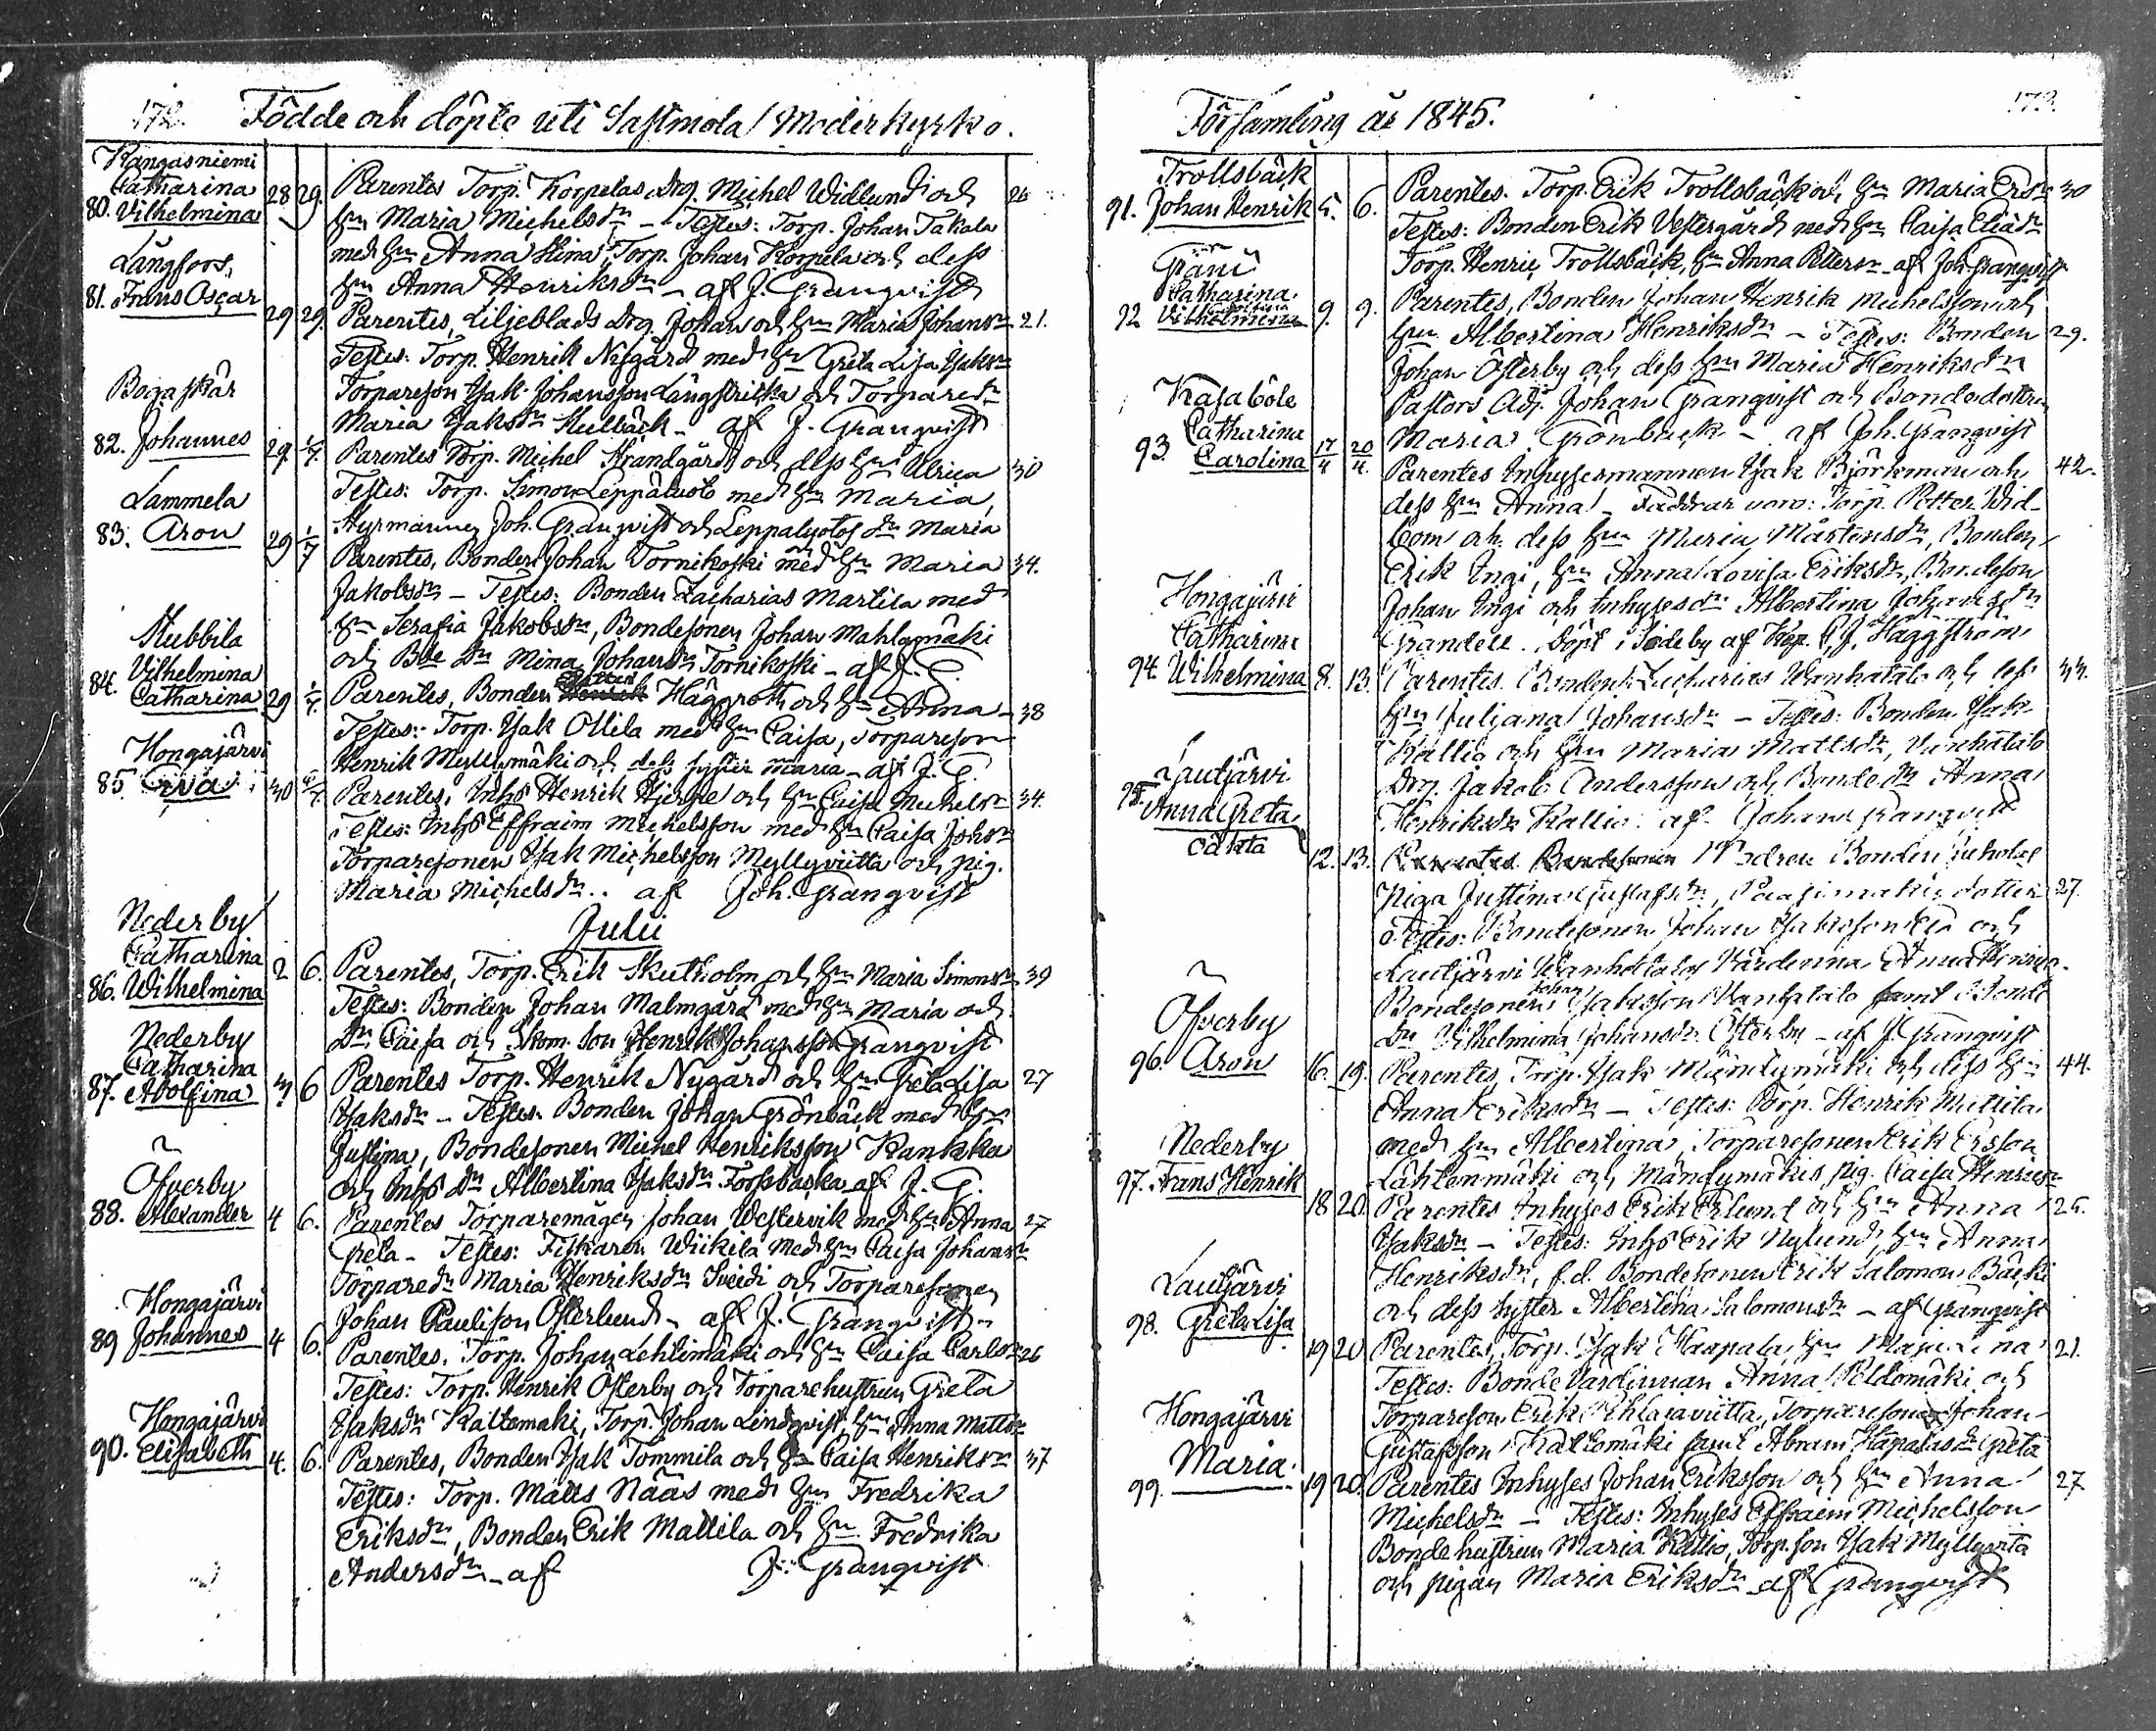 172. Födde och döpte uti Sastmola Moderkyrko.
Kangasniemi
Catharina
80. Vilhelmina 28 29. Parentes Torp. Korpelas drg. Michel Widlund och 26
hn Maria Michelsdn - Testes: Torp. Johan Takala
med hn Anna Stina, Torp. Johan Korpela och dess
hn Anna Henriksdn - af J. Granqvist
Långfors,
81. Frans Oscar 29 29. Parentes, Liljeblads drg. Johan och hn Maria Johansn 21.
Testes: Torp. Henrik Nygård med hn Greta Lisa Isaksn
Torpareson Isak Johansson Långstricka och Torparedn
Maria Isaksdn Kullbäck - af J. Granqvist
Bogaskär
82. Johannes 29. 1/7. Parentes Torp. Michel Strandgård och dess hn Ulrica 30
Testes: Torp. Simon Leppäluoto med hn Maria,
Styrmannen Joh. Granqvist och Leppäluotos dn Maria
Lammela
83. Aron 29 1/7 Parentes, Bonden Johan Tornikoski med hn Maria 34.
Jakobsdn - Testes: Bonden Zacharias Martila med
hn Serafia Jakobsdn, Bondesonen Johan Mahlamäki
och Bde dn Mina Johansdn Tornikoski - af J. G.
Stubbila
Vilhelmina
84. Catharina 29 1/7. Parentes, Bonden Petter Häggroth och hn Anna - 38
Testes: Torp. Isak Ollila med hn Caisa, Torpareson
Henrik Myllymäki och dess syster Maria - af J. G.
Hongajärvi
85. Eva 30 6/7. Parentes, Inhs Henrik Hjerpe och hn Caisa Michelsn 34.
Testes: Inhs Effraim Michelsson med hn Caisa Johsn
Torparesonen Isak Michelsson Myllyviitta och pig.
Maria Michelsdn. af Joh. Granqvist
Julii
Nederby
Catharina
86. Wilhelmina 2 6. Parentes, Torp. Erik Skutholm och hn Maria Simonsn 39
Testes: Bonden Johan Malmgård med hn Maria och
Dn Caisa och Skom. Son Henrik Johansson Granqvist
Nederby
Catharina
87. Adolfina 3 6 Parentes Torp. Henrik Nygård och hn Greta Lisa 27
Isaksdn - Testes. Bonden Johan Grönbäck med hn
Justina, Bondesonen Michel Henriksson Kankka
och Inhs dn Albertina Isaksdn Forssbacka af J. G.
Öfverby
88. Alexander 4 6. Parentes Torparemågen Johan Westervik med hn Anna 27
Greta - Testes: Fiskaren Wiikila med hn Caisa Johansn
Torparedn Maria Henriksdn Sveidi och Torparesonen
Johan Paulsson Österlund - af J. Granqvist
Hongajärvi
89 Johannes 4 6. Parentes. Torp. Johan Lehtimäki och hn Caisa Carlsn 26
Testes: Torp. Henrik Österby och Torparehustrun Greta
Isaksdn Kaltemäki, Torp. Johan Lindqvist, hn Anna Mattsn
Hongajärvi
90. Elisabeth 4. 6. Parentes, Bonden Isak Tommila och hn Caisa Henriksn 37
Testes: Torp. Matts Nääs med hn Fredrika
Eriksdn, Bonden Erik Mattila och hn Fredrika
Andersdn - af J. Granqvist
Församling år 1845. 173.
Trollsbäck
91. Johan Henrik 5. 6. Parentes. Torp. Erik Trollsbäck och hn Maria Ersdn 30
Testes: Bonden Erik Vestergård med hn Caisa Eliädn
Torp. Henric Trollsbäck, hn Anna Pettersn - af Joh. Granqvist
Gräni
Catharina
92 Vilhelmina 9. 9. Parentes, Bonden Johan Henrik Michelsson och
hn Albertina Henriksdn - Testes: Bonden 29.
Johan Österby och dess hn Maria Henriksdn
Pastors Adj. Johan Granqvist och Bondedottren
Maria Grönback - af Joh. Granqvist
Kasaböle
Catharina
93. Carolina 17/4 20/4. Parentes Inhysesmannen Isak Björkman och 42.
dess hn Anna - Faddrar voro: Torp. Petter Wid-
bom och dess hn Maria Mårtensdn, Bonden
Erik Ingi, hn Anna Lovisa Eriksdn, Bondeson
Johan Ingi och Inhysesdn Albertina Johansdn
Grandell. Döpt i Sideby af Kap. J. Häggström
Hongajärvi
Catharina
94. Wilhelmina 8. 13. Parentes. Bonden Zacharias Wanhatalo och dess 33.
hn Juliana Johansdn - Testes: Bonden Isak
Kallio och hn Maria Mattsdn, Vanhatalo
Drg. Jakob Andersson och Bondedn Anna
Henriksdn Kallio. af Johan Granqvist
Lautjärvi
95. Anna Greta
oäkta 12. 13. Modren Bonden
Piga Justina Gustafsdn, dotter 27.
Testes: Bondesonen Johan Isaksson och
Lautjärvi Wanhatalos Värdinna Anna
Bondesonen Johan Isaksson Vanhatalo samt Bonde
dn Vilhelmina Johansdn Österby - af J. Granqvist
Öfverby
96. Aron 16. 19. Parentes, Torp. Isak Mändymäki och dess hn 44.
Anna Eriksdn - Testes: Torp. Henrik Mattila
med hn Albertina, Torparesonen Erik Ersson
Lähtenmäki och Mändymäkis pig. Caisa Henricsn
Nederby
97. Frans Henrik 18 20. Parentes Inhyses Erik Erlund och hn Anna 26.
Isaksdn - Testes: Inhs Erik Nylund, hn Anna
Henriksdn, f.d. Bondesonen Erik Salomon Bäcki
och dess syster Albertina Salomonsdn - af Granqvist
Lautjärvi
98. Greta Lisa 19 20. Parentes, Torp. Isak Haapala, hn Maja Lena 21.
Testes: Bondevärdinnan Anna Peldomäki och
Torpareson Erik Torparesonen Johan
Gustafsson Kaltomäki samt Abram Hapalas dn Greta
Hongajärvi
Maria.
99. 19 20. Parentes Inhyses Johan Eriksson och hn Anna 27
Michelsdn - Testes: Inhyses Effraim Michelsson
Bondehustrun Maria Kallio, Torp. son Isak Myllyvita
och pigan Maria Eriksdn af Granqvist